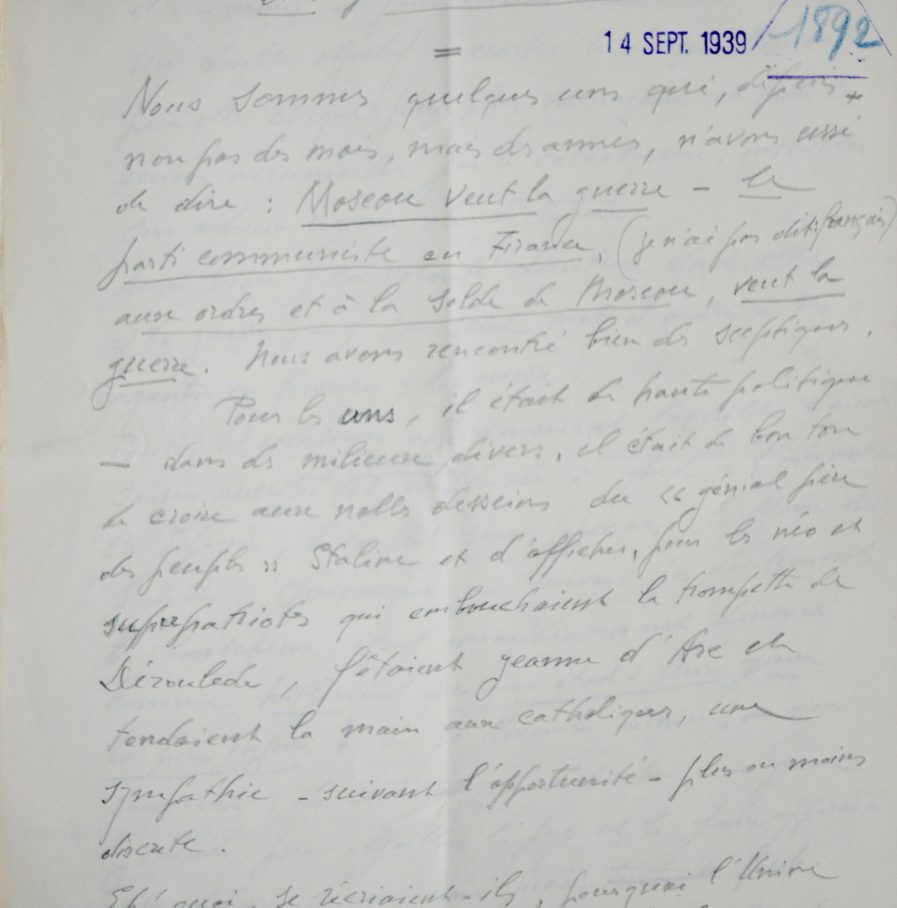 14 SEPT. 1939
1892
Nous sommes quelques uns qui, depuis
non pas des mois, mais des années, n'avons cessé
de dire : Moscou veut la guerre - le
parti communiste en France, (je n'ai pas dit français)
aux ordres et à la solde de Moscou, veut la
guerre. Nous avons rencontré bien des sceptiques.
Pour les uns, il était de haute politique
- dans des milieux divers, il était de bon ton
de croire aux nobles desseins du "génial père
des peuples" Staline et d'afficher, pour les néo et
superpatriotes qui embouchaient la trompette de
Déroulède, fêtaient Jeanne d'Arc et
tendaient la main aux catholiques, une
sympathie - suivant l'opportunité - plus ou moins
discrète.
Eh! quoi, se récriaient-ils, pourquoi l'Union